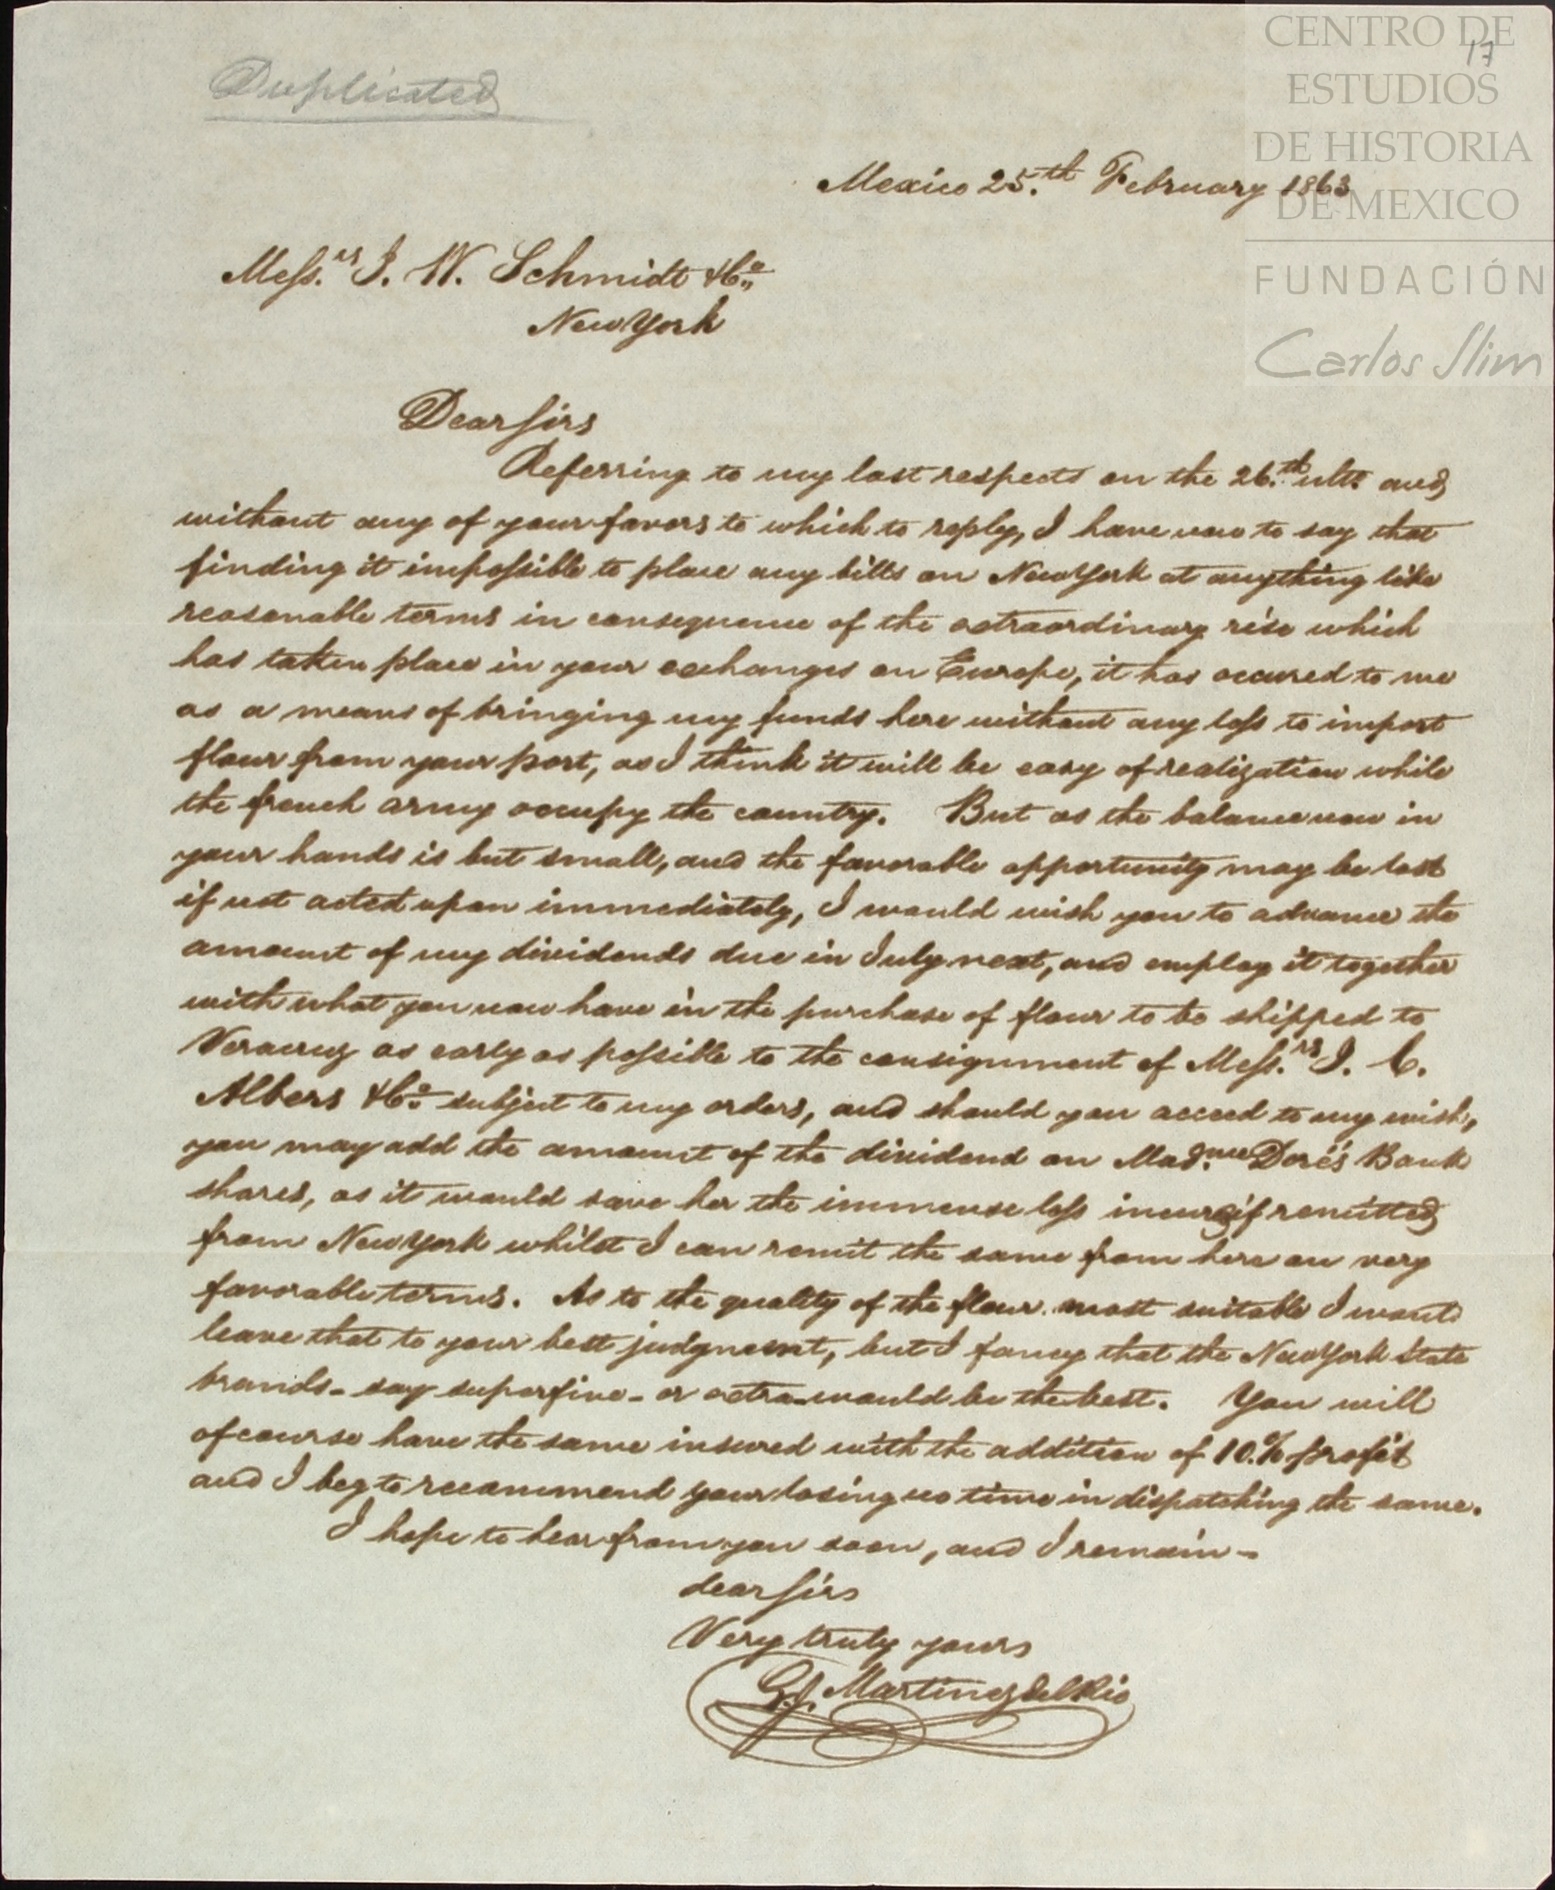 CENTRO DE
ESTUDIOS
DE HISTORIA
DE MEXICO
FUNDACIÓN
Carlos Slim
17
Duplicated
Mexico 25.th February 1863
Mess.rs J. W. Schmidt & Co.
New York
Dear Sirs
Referring to my last respects on the 26.th ulto. and
without any of your favors to which to reply, I have now to say that
finding it impossible to place any bills on New York at anything like
reasonable terms in consequence of the extraordinary rise which
has taken place in your exchanges on Europe, it has occured to me
as a means of bringing my funds here without any loss to import
flour from your port, as I think it will be easy of realization while
the french army occupy the country. But as the balance now in
your hands is but small, and the favorable opportunity may be lost
if not acted upon immediately, I would wish you to advance the
amount of my dividends due in July next, and employ it together
with what you now have in the purchase of flour to be shipped to
Veracruz as early as possible to the consignment of Mess.rs J. C.
Albers & Co. subject to my orders, and should you acceed to my wish,
you may add the amount of the dividend on Mad.me Doré's Bank
shares, as it would save her the immense loss incurd if remitted
from New York whilst I can remit the same from here on very
favorable terms. As to the quality of the flour most suitable I would
leave that to your best judgment, but I fancy that the New York State
brands - say superfine - or extra would be the best. You will
of course have the same insured with the addition of 10.% profit
and I beg to recommend your losing no time in dispatching the same.
I hope to hear from you soon, and I remain -
dear Sirs
Very truly yours
G. J. Martinez del Rio